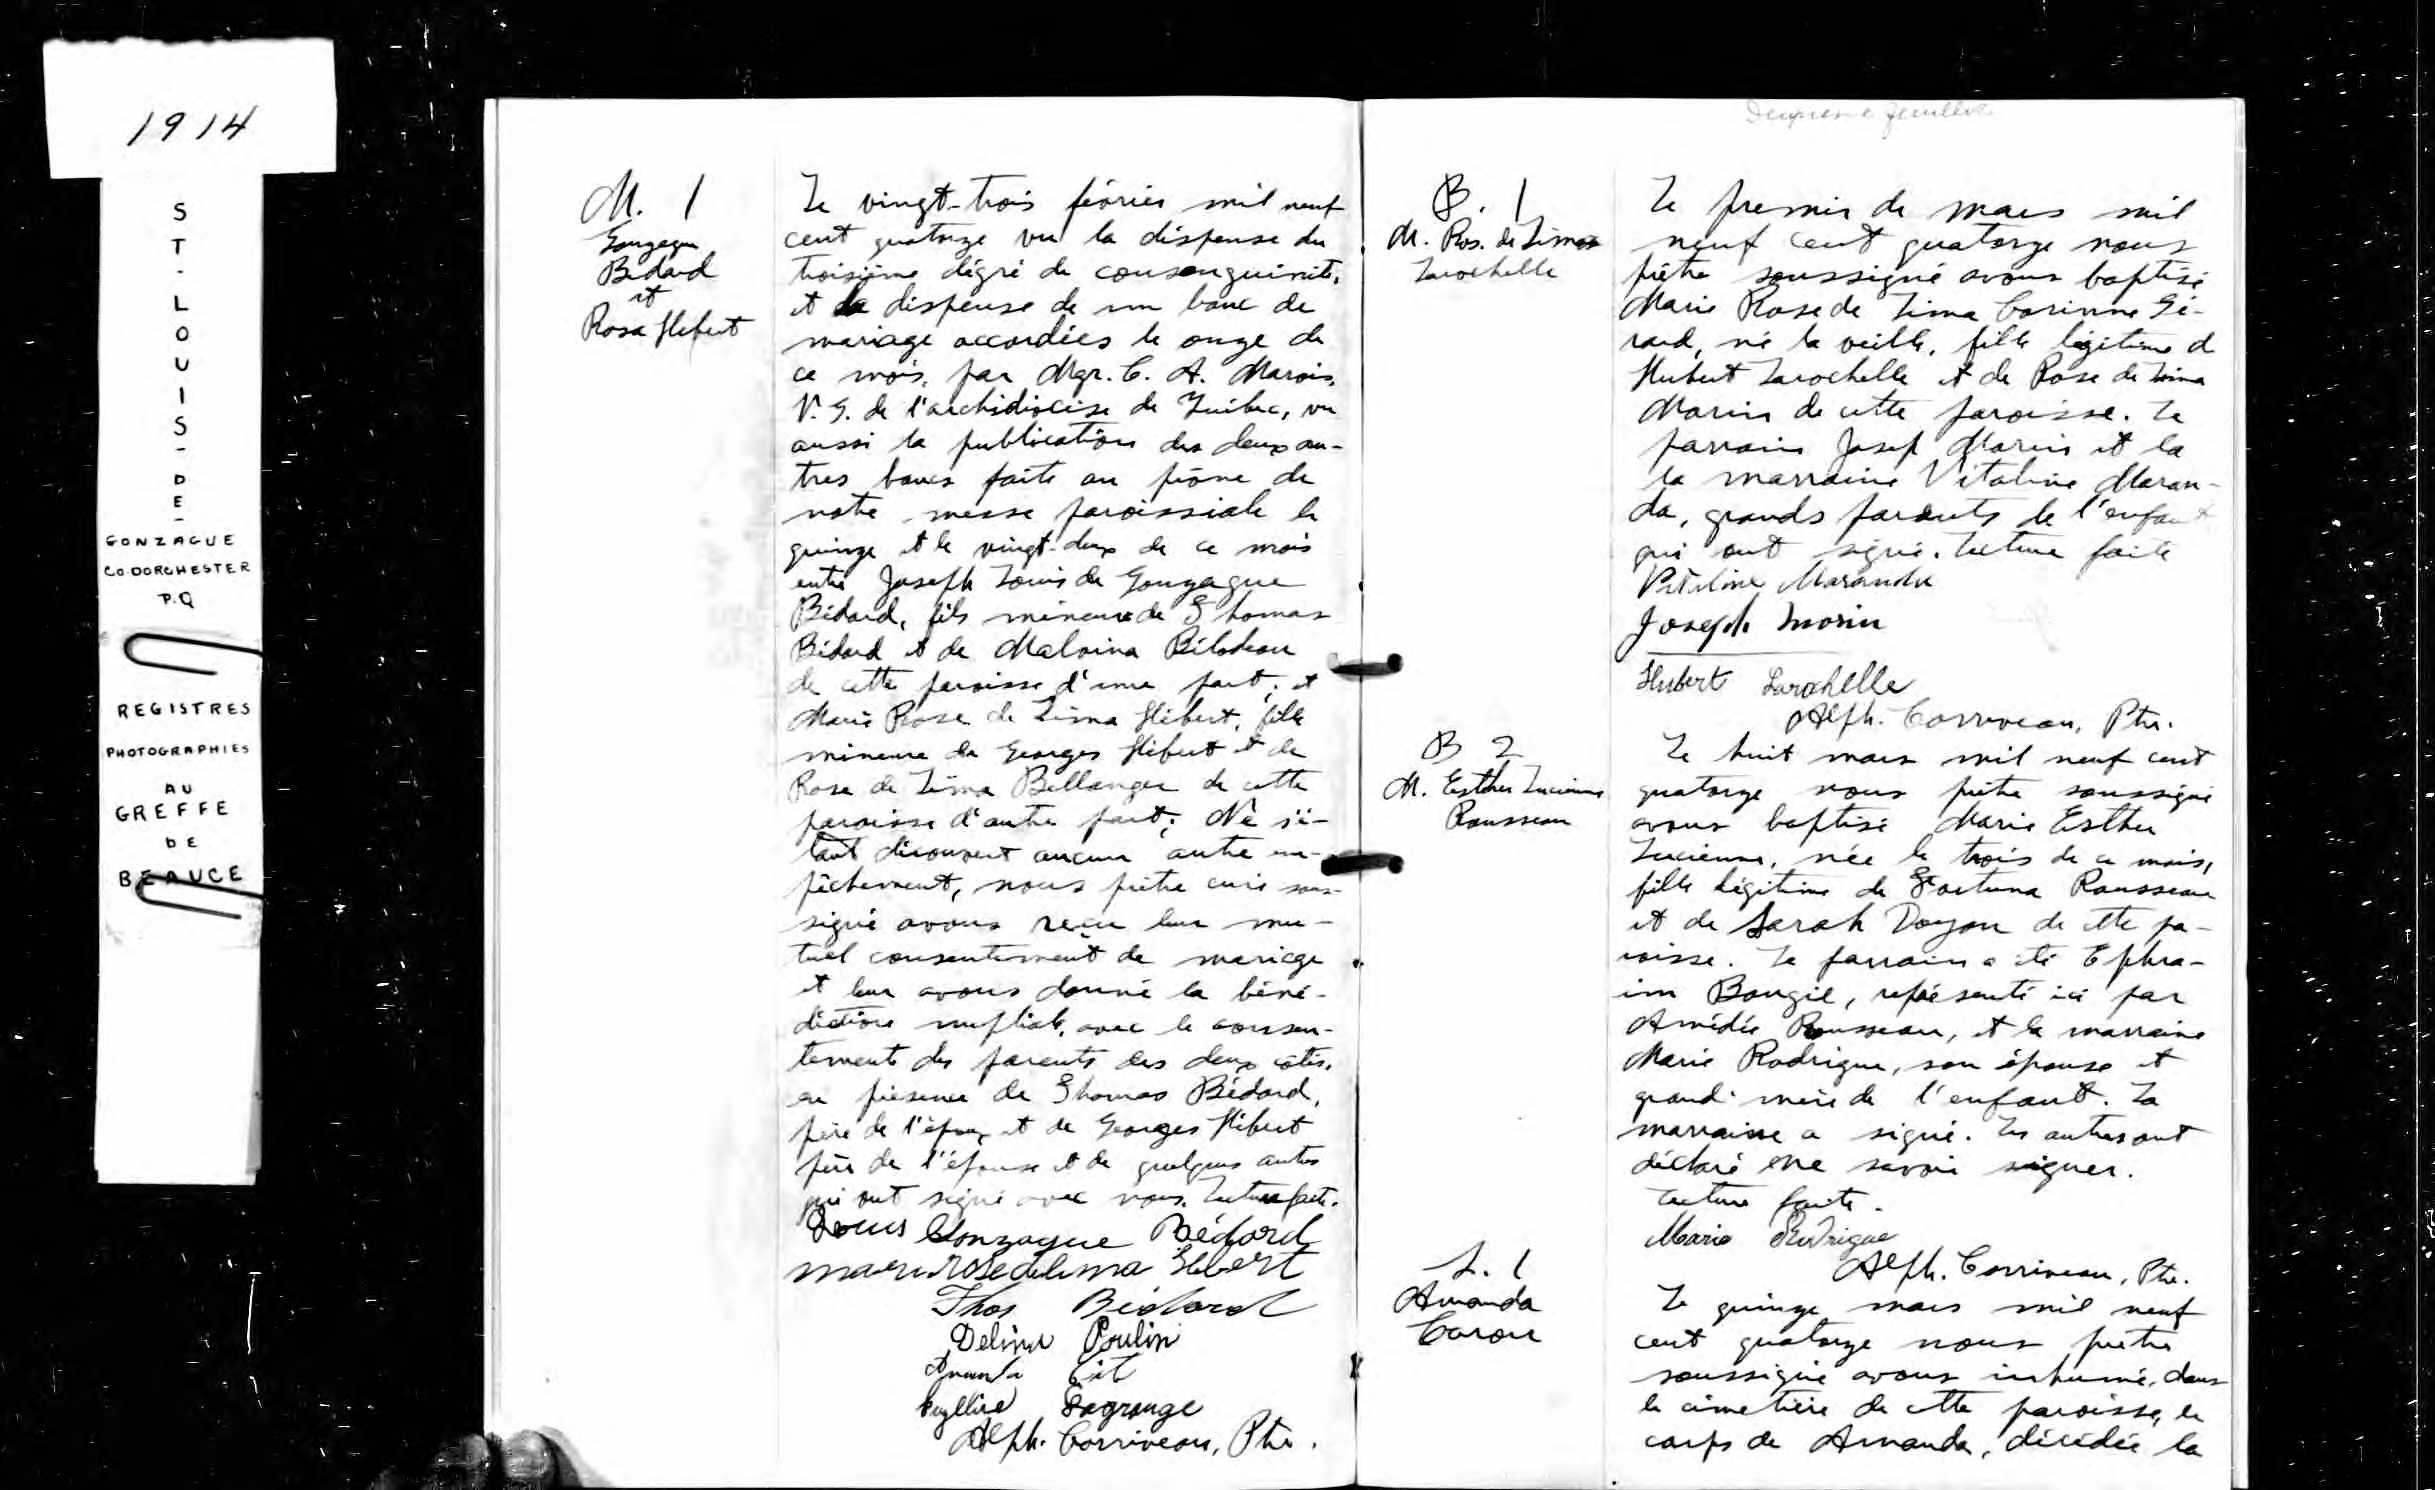 1914
ST-LOUIS-DE-
GONZAGUE
CO. DORCHESTER
P.Q
REGISTRES
PHOTOGRAPHIES
AU
GREFFE
DE
BEAUCE
M. 1
Gonzague
Bédard
et
Rosa Hebert
Le vingt-trois février mil neuf
cent quatorze vu la dispense du
troisième dégré de consanguinité,
et la dispense de un banc de
mariage accordées le onze de
ce mois, par Mgr. C. A. Marois,
V. G. de l'archidiocèse de Québec, vu
aussi la publication des deux au-
tres bancs faite au prône de
notre messe paroissiale le
quinze et le vingt-deux de ce mois
entre Joseph Louis de Gonzague
Bédard, fils mineur de Thomas
Bédard et de Malvina Bilodeau
de cette paroisse d'une part; et
Marie Rose de Lima Hébert, fille
mineure de Georges Hébert et de
Rose de Lima Bellanger de cette
paroisse d'autre part; Ne s'é-
tant découvert aucun autre em-
pêchement, nous prêtre curé sous-
signé avons reçu leur mu-
tuel consentement de mariage
et leur avons donné la béné-
diction nuptiale, avec le consen-
tement des parents des deux côtés,
en présence de Thomas Bédard,
père de l'époux et de Georges Hébert
père de l'épouse et de quelques autres
qui ont signé avec nous. Lecture faite.
Louis Gonzague Bédard
marie rose delima Hebert
Thos Bédard
Delima Poulin
Lagrange
Alph. Corriveau, Ptre.
B. 1
M. Ros. de Lima
Larochelle
Le premier de mars mil
neuf cent quatorze nous
prêtre soussigné avons baptisé
Marie Rose de Lima Corinne Gé-
rard, né la veille, fille légitime d
Hubert Larochelle et de Rose de Lima
Morin de cette paroisse. Le
parrain Josef Morin et la
la marraine Vitaline Maran-
da, grands parents de l'enfant
qui ont signé. Lecture faite
Vitaline Maranda
Joseph morin
Hubert Larochelle
Alph. Corriveau, Ptre.
B 2
M. Esther Lucienne
Rousseau
Le huit mars mil neuf cent
quatorze nous prêtre soussigné
avons baptisé Marie Esther
Lucienne, née le trois de ce mois,
fille légitime de Fortuna Rousseau
et de Sarah Doyon de cette pa-
roisse. Le parrain a été Ephra-
im Bougie, représenté ici par
Amédée Rousseau, et la marraine
Marie Rodrigue, son épouse et
grand-mère de l'enfant. La
marraine a signé. Les autres ont
déclaré ne savoir signer.
Lecture faite.
Marie Rodrigue
Alph. Corriveau, Ptre.
S. 1
Amanda
Caron
Le quinze mars mil neuf
cent quatorze nous prêtre
soussigné avons inhumé, dans
le cimetière de cette paroisse, le
corps de Amanda, décédée la